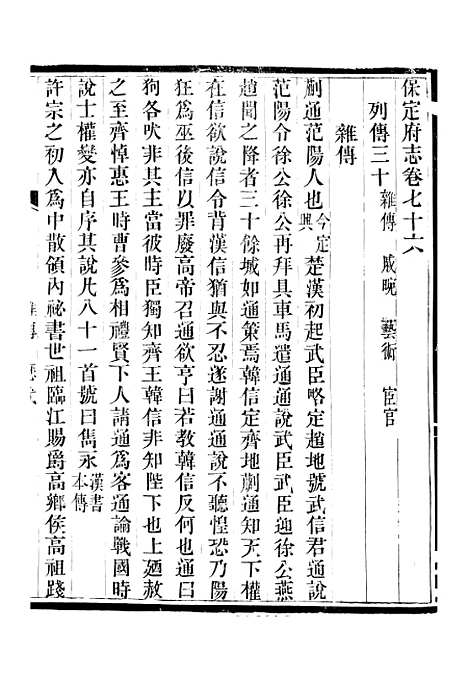 保定府志卷七十六
列傳三十 雜傳 戚畹 藝術 宦官
雜傳
蒯通范陽人也 今定興 楚漢初起武臣略定趙地號武信君通說
范陽令徐公徐公再拜具車馬遣通通說武臣武臣迎徐公燕
趙聞之降者三十餘城如通策焉韓信定齊地蒯通知天下權
在信欲說信令背漢信猶與不忍遂謝通通說不聽惶恐乃陽
狂為巫後信以罪廢高帝召通欲亨曰若教韓信反何也通曰
狗各吠非其主當彼時臣獨知齊王韓信非知陛下也上迺赦
之至齊悼惠王時曹參為相禮賢下人請通為客通論戰國時
說士權變亦自序其說凡八十一首號曰雋永 漢書本傳
許宗之初入為中散領內祕書世祖臨江賜爵高鄉侯高祖踐